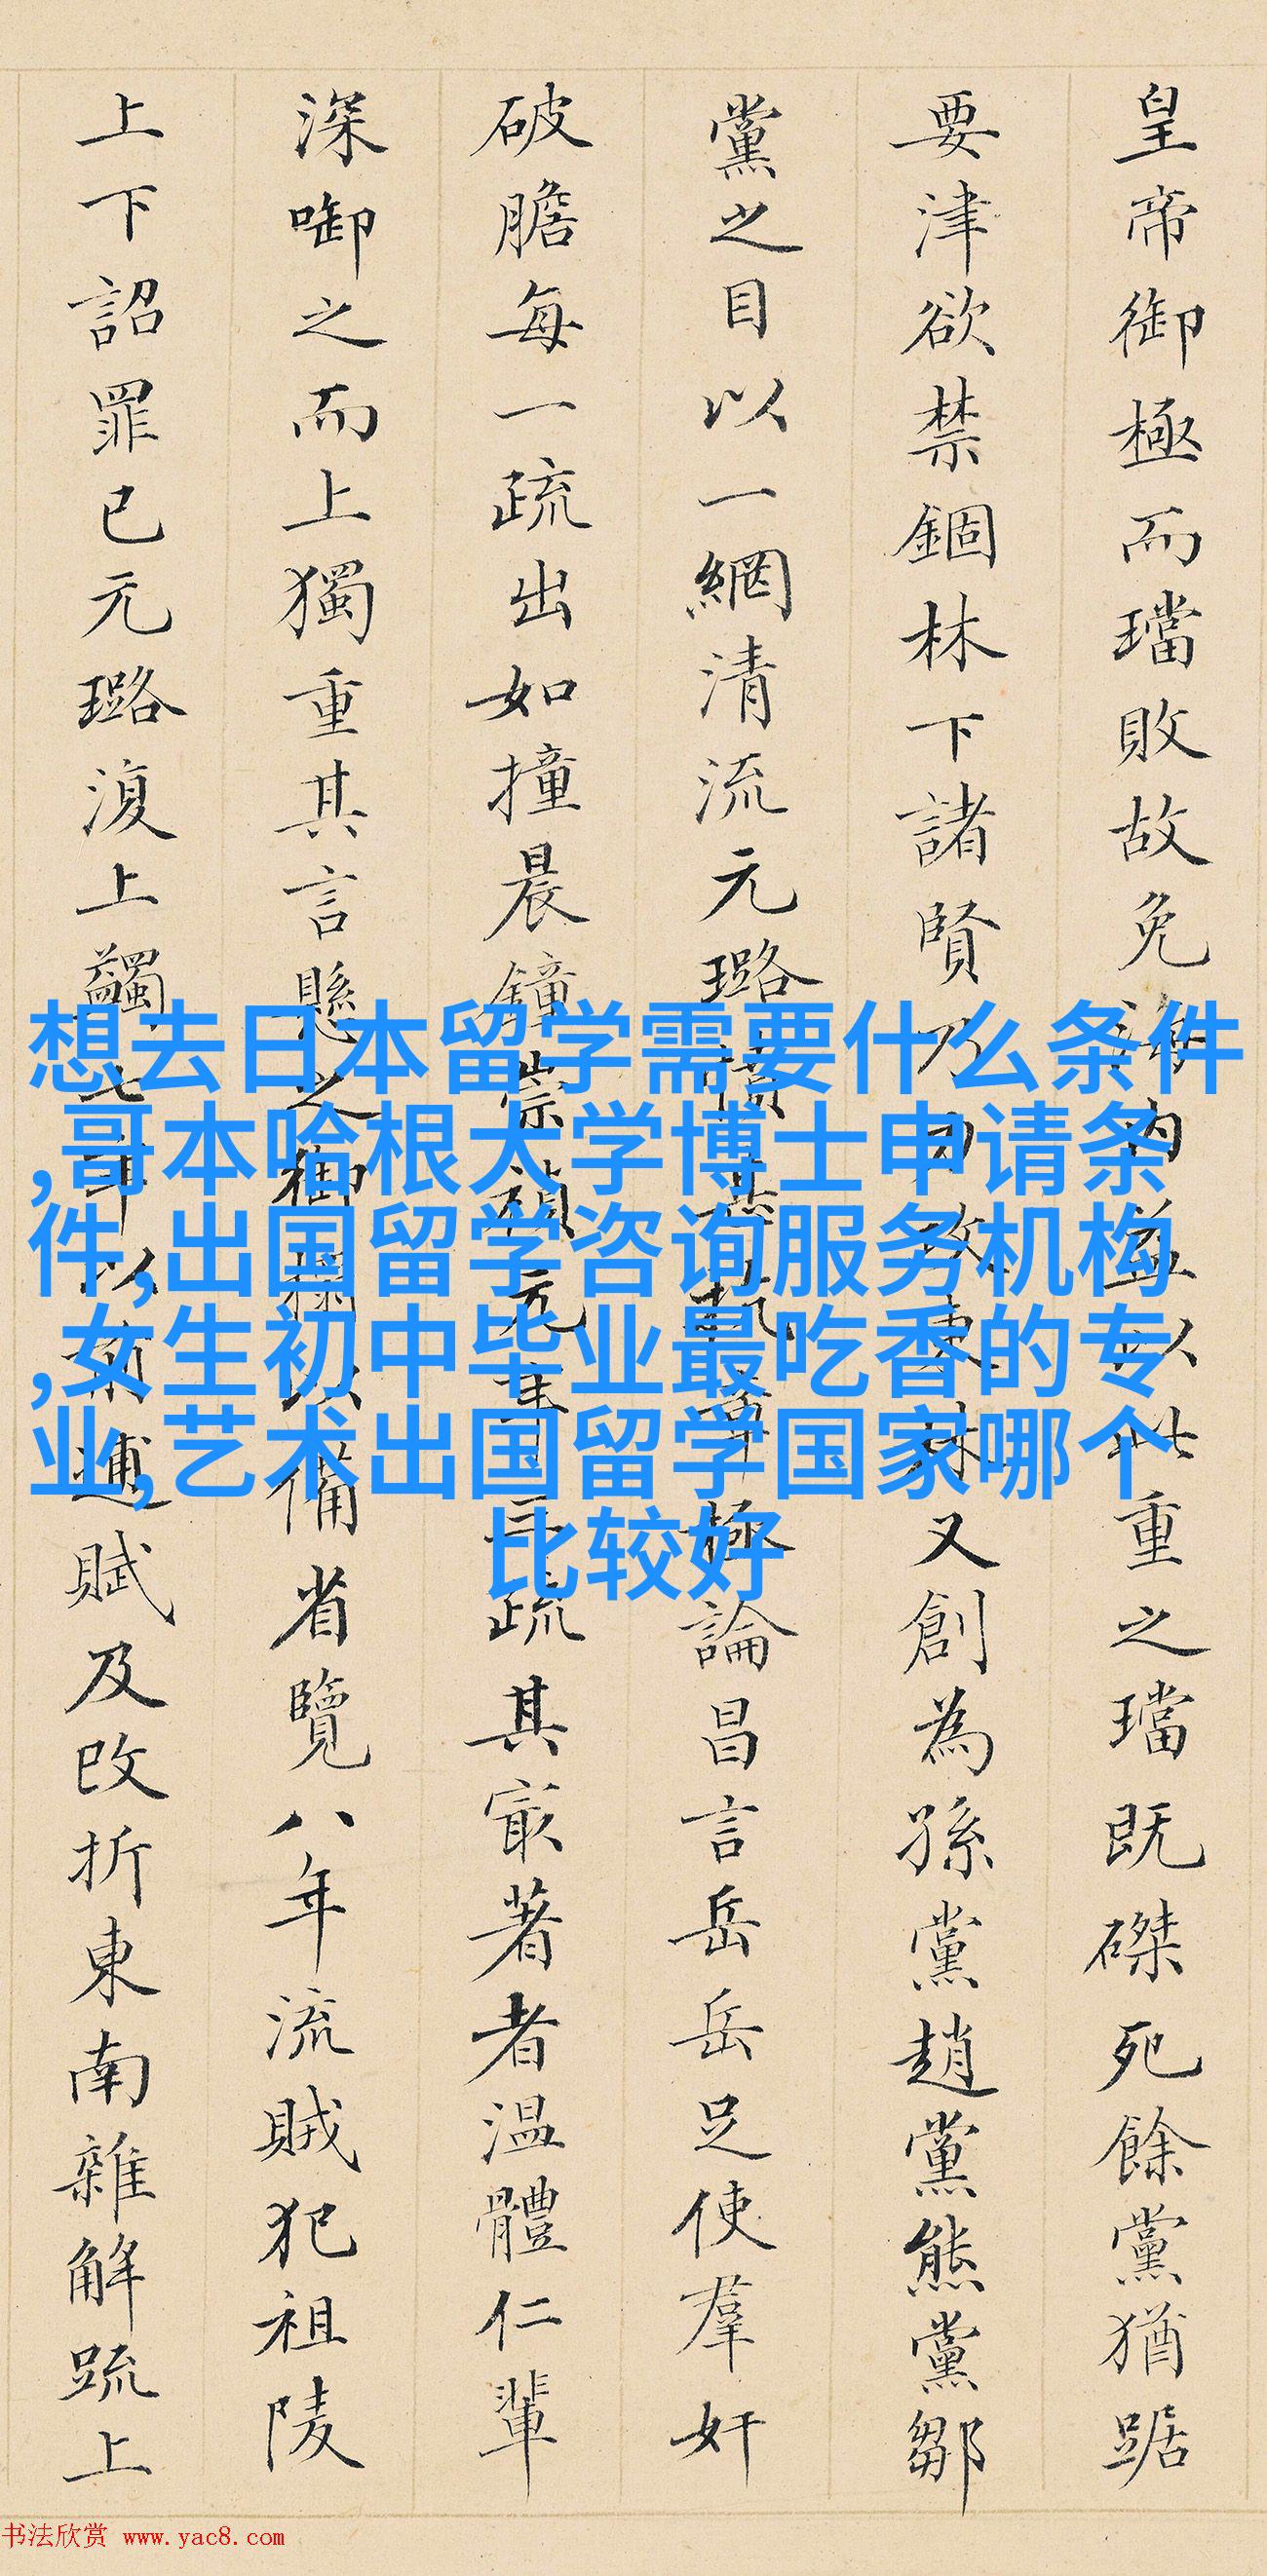 皇帝御極而璫敗故免海內並以此重之璫既磔死餘黨猶踞
要津欲禁錮林下諸賢乃力攻東林又創為孫黨趙黨熊黨鄒
黨之目以一網清流元璐憤甚抗章極論昌言岳岳足使羣奸
破膽每一疏出如撞晨鐘崇禎元年三疏其寂著者溫體仁輩
深啣之而上獨重其言懸之御以備省覽八年流賊犯祖陵
上下詔罪已元璐復上蠲七年以前逋賦及改折東南雜解疏上
想去日本留学需要什么条件
,哥本哈根大学博士申请条
件,出国留学咨询服务机构
,女生初中毕业最吃香的专
业,艺术出国留学国家哪个
比较好
书法欣赏 www.yac8.com